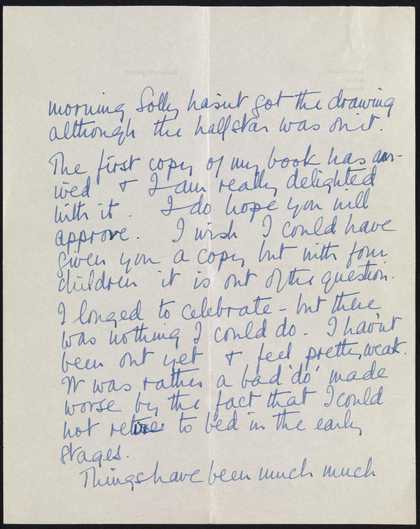 morning Solly hasn't got the drawing
although the half star was on it.
The first copy of my book has arr-
ived & I am really delighted
with it. I do hope you will
approve. I wish I could have
given you a copy but with four
children it is out of the question.
I longed to celebrate - but there
was nothing I could do. I havn't
been out yet & feel pretty weak.
It was rather a bad 'do' made
worse by the fact that I could
not retire to bed in the early
stages.
Things have been much much